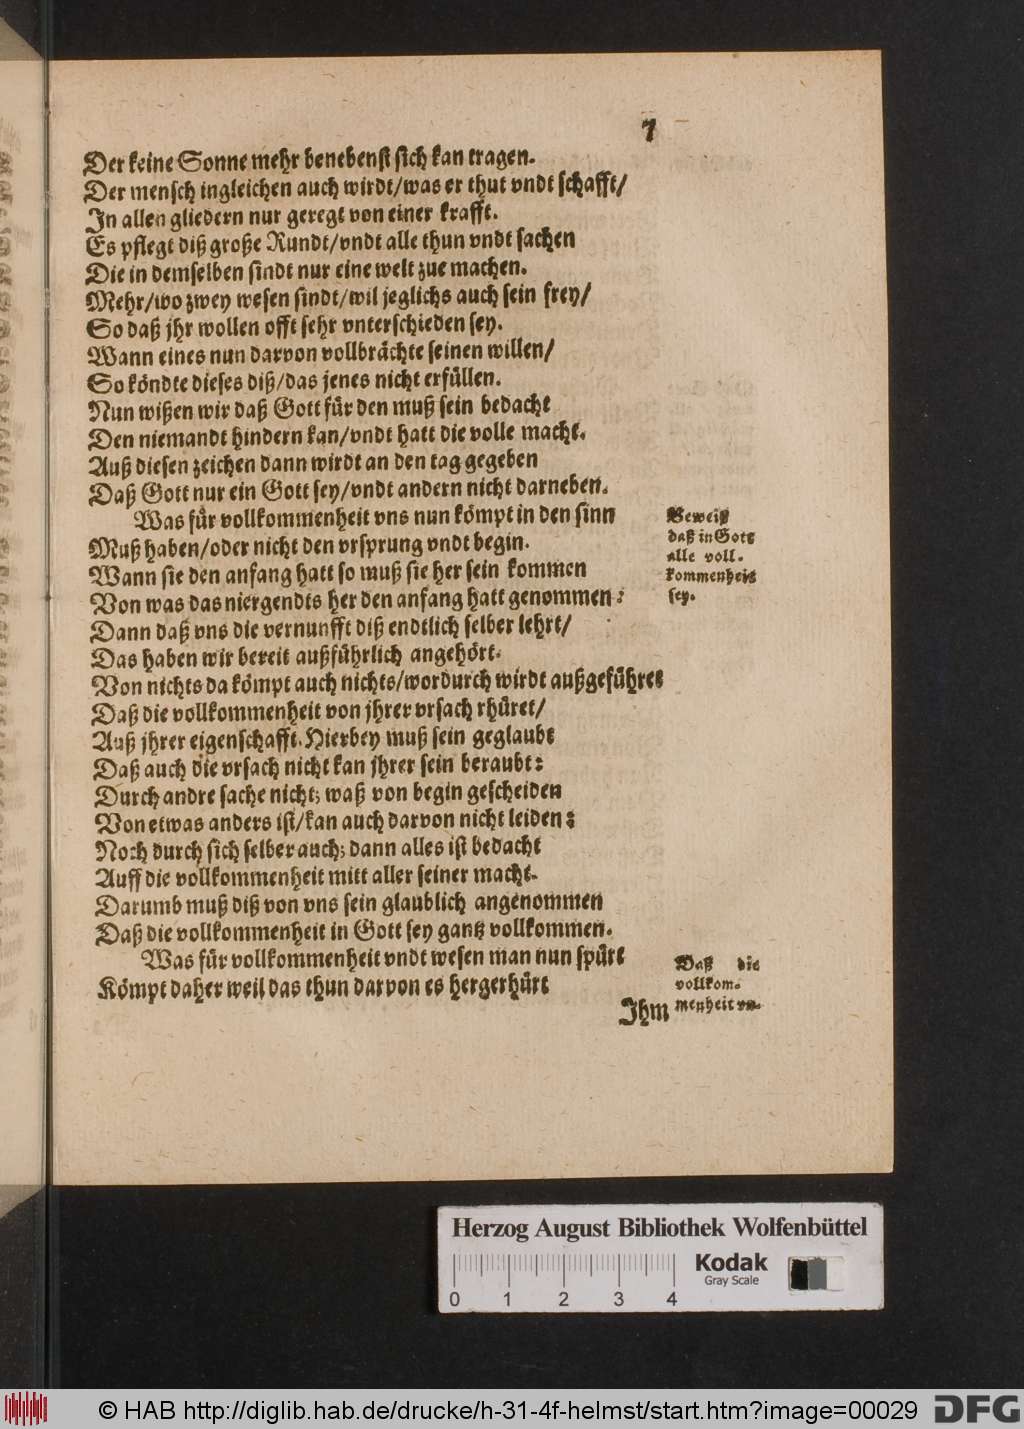 7
Der keine Sonne mehr benebenst sich kan tragen.
Der mensch ingleichen auch wirdt/was er thut vndt schafft/
In allen gliedern nur geregt von einer krafft.
Es pflegt diß große Rundt/vndt alle thun vndt sachen
Die in demselben sindt nur eine welt zue machen.
Mehr/wo zwey wesen sindt/wil jeglichs auch sein frey/
So daß jhr wollen offt sehr vnterschieden sey.
Wann eines nun darvon vollbrächte seinen willen/
So köndte dieses diß/das jenes nicht erfüllen.
Nun wißen wir daß Gott für den muß sein bedacht
Den niemandt hindern kan/vndt hatt die volle macht.
Auß diesen zeichen dann wirdt an den tag gegeben
Daß Gott nur ein Gott sey/vndt andern nicht darneben.
Was für vollkommenheit vns nun kömpt in den sinn
Muß haben/oder nicht den vrsprung vndt begin.
Wann sie den anfang hatt so muß sie her sein kommen
Von was das niergendts her den anfang hatt genommen:
Dann daß vns die vernunfft diß endtlich selber lehrt/
Das haben wir bereit außführlich angehört.
Von nichts da kömpt auch nichts/wordurch wirdt außgeführet
Daß die vollkommenheit von jhrer vrsach rhüret/
Auß jhrer eigenschafft. Hierbey muß sein geglaubt
Daß auch die vrsach nicht kan jhrer sein beraubt:
Durch andre sache nicht; waß von begin gescheiden
Von etwas anders ist/kan auch darvon nicht leiden:
Noch durch sich selber auch; dann alles ist bedacht
Auff die vollkommenheit mitt aller seiner macht.
Darumb muß diß von vns sein glaublich angenommen
Daß die vollkommenheit in Gott sey gantz vollkommen.
Was für vollkommenheit vndt wesen man nun spürt
Kömpt daher weil das thun darvon es hergerhürt
Ihm
Beweiß
daß in Gott
alle voll-
kommenheit
sey.
Daß die
vollkom-
menheit vn-
Herzog August Bibliothek Wolfenbüttel
Kodak
Gray Scale
0 1 2 3 4
© HAB http://diglib.hab.de/drucke/h-31-4f-helmst/start.htm?image=00029
DFG